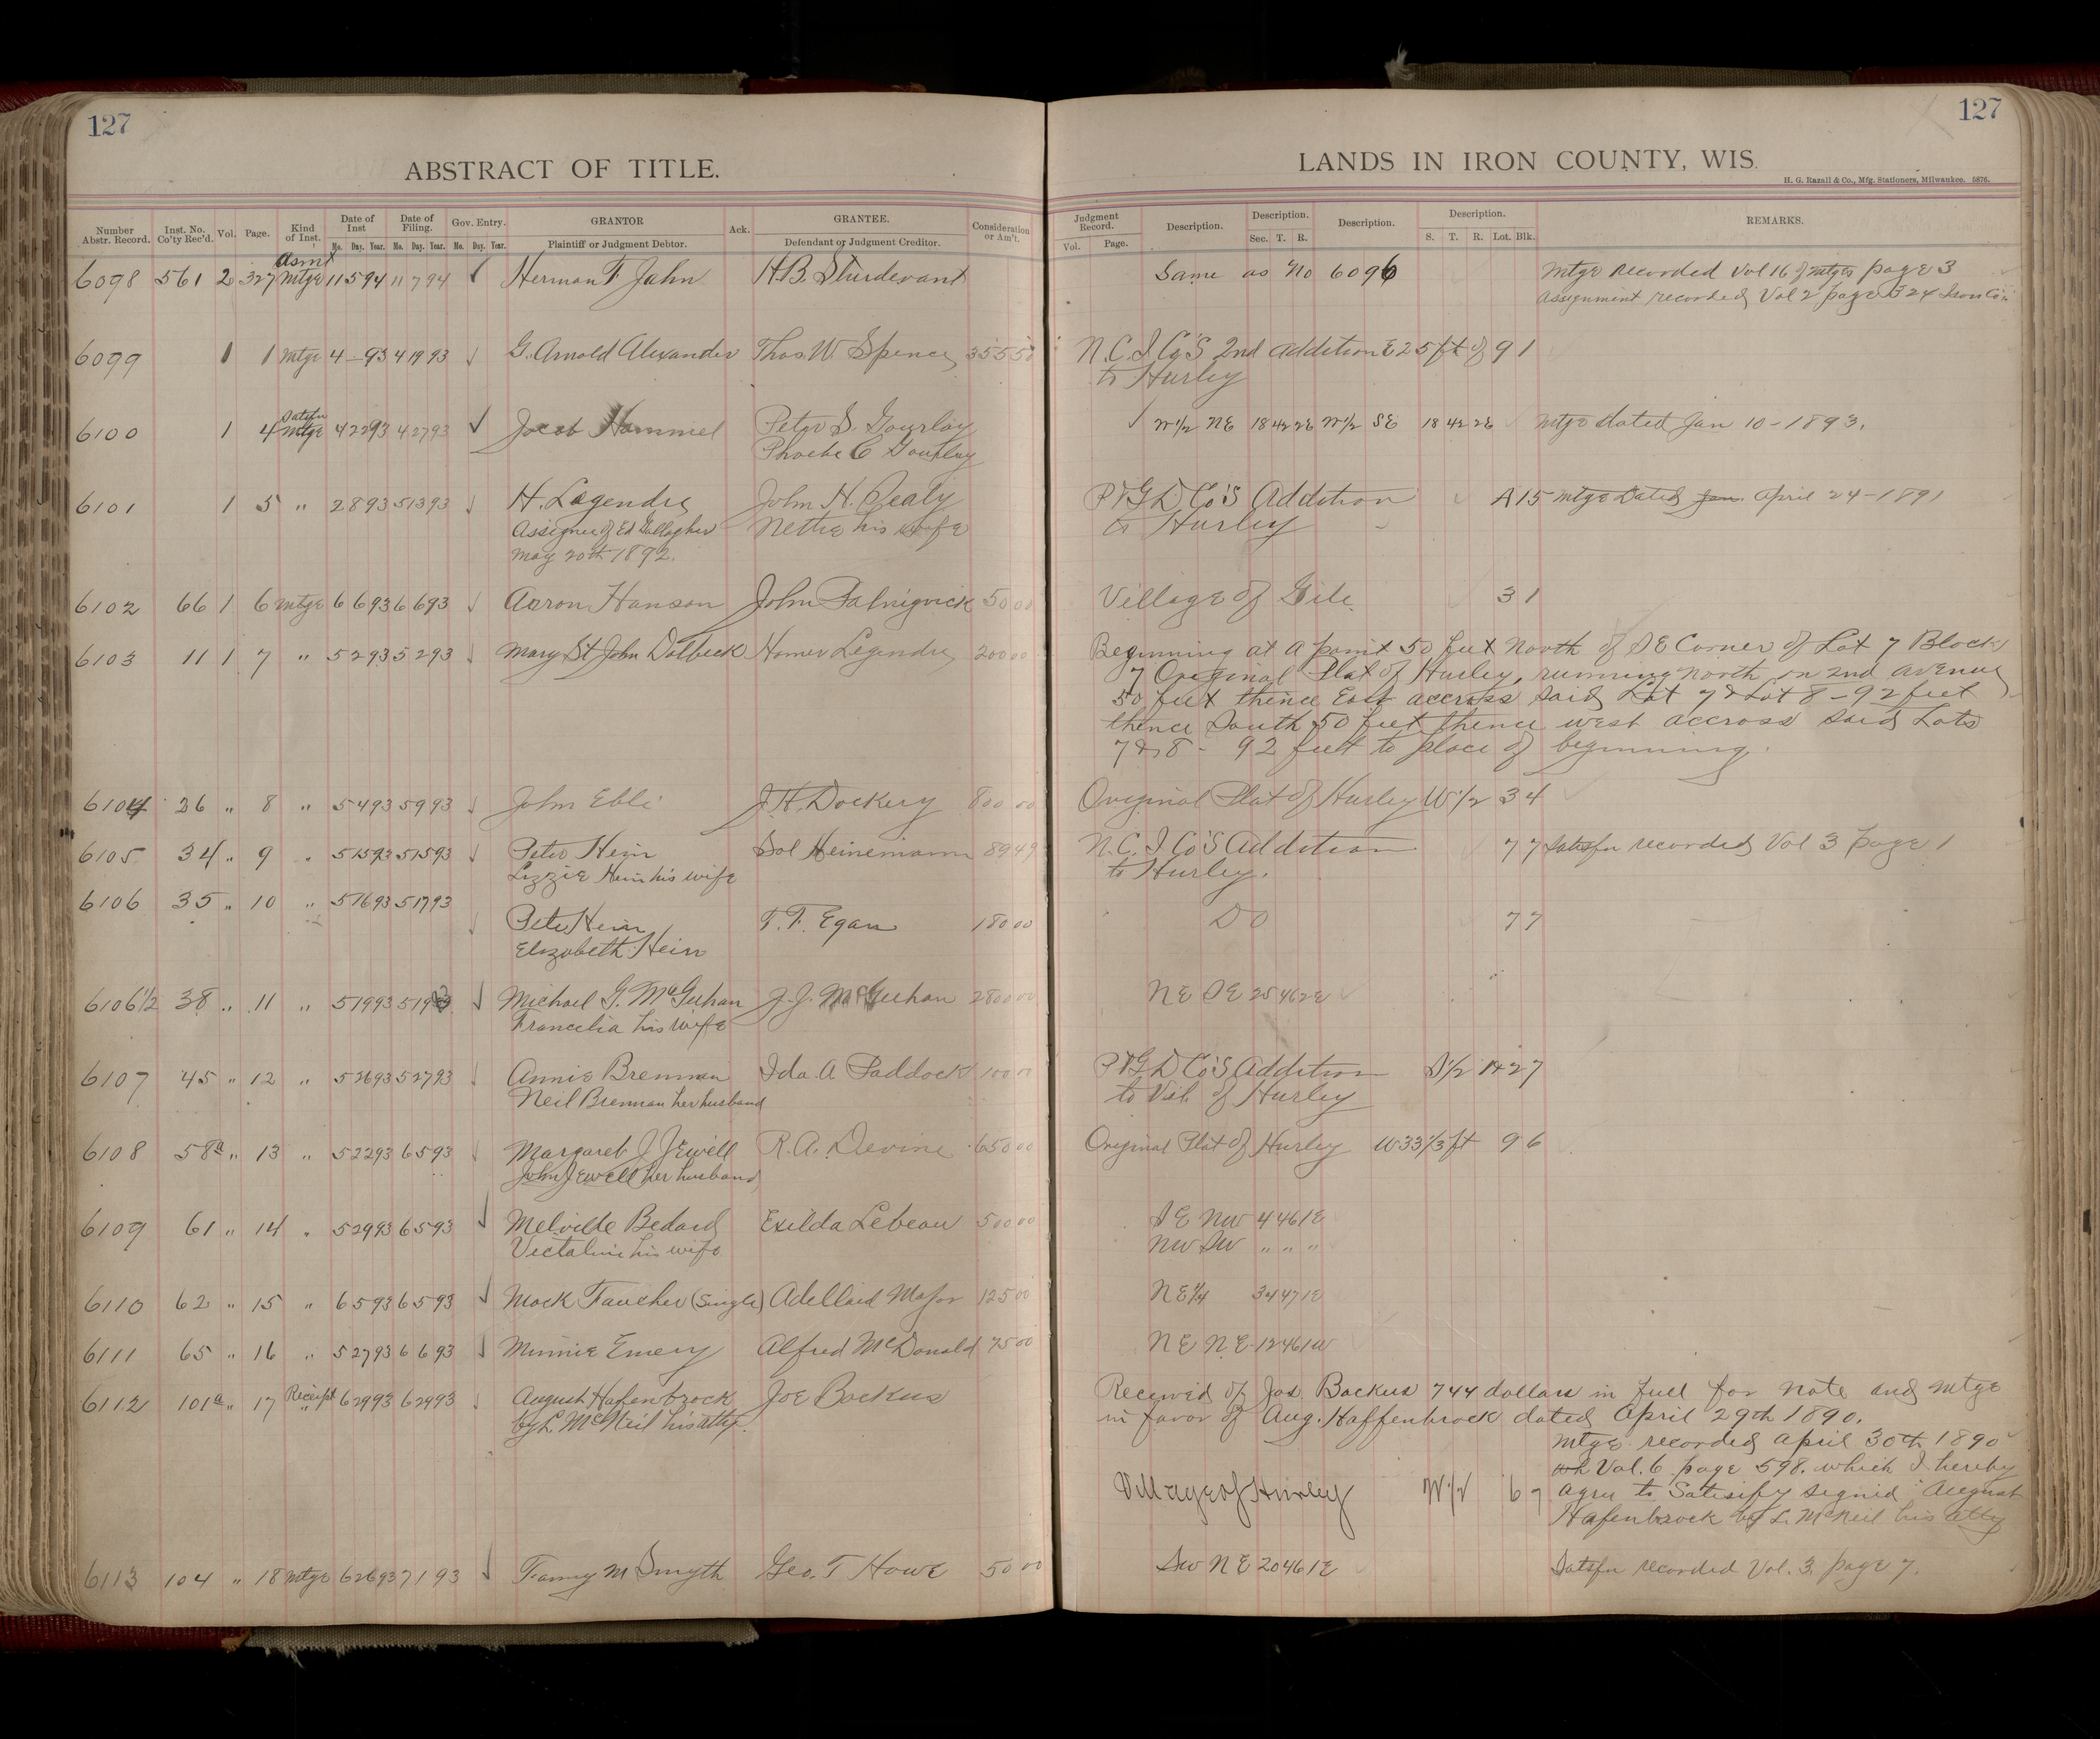 127
127
ABSTRACT OF TITLE.
LANDS IN IRON COUNTY, WIS.
H. G. Razall & Co., Mfg. Stationers, Milwaukee. 5876.
Number Abstr. Record. Inst. No. Co'ty Rec'd. Vol. Page. Kind of Inst. Date of Inst Mo. Day. Year. Date of Filing. Mo. Day. Year. Gov. Entry. Mo. Day. Year. GRANTOR Plaintiff or Judgment Debtor. Ack. GRANTEE. Defendant or Judgment Creditor. Consideration or Am't. Judgment Record. Vol. Page. Description. Description. Sec. T. R. Description. Description. S. T. R. Lot. Blk. REMARKS.
Asmt
6098 561 2 327 Mtge 11 5 94 11 7 94 Herman F Jahn H.B. Sturdevant Same as No 6096 Mtge recorded Vol 16 of Mtges page 3
Assignment recorded Vol 2 page 324 Iron Co
6099 1 1 Mtge 4 – 93 4 19 93 G. Arnold Alexander Thos. W. Spence 355 50 N.C.I. Co'S 2nd Addition E 25 ft of 9 1
to Hurley
Satsfn
6100 1 4 Mtge 4 22 93 4 27 93 Jacob Hammel Peter S. Gourlay W 1/2 NE 18 42 2E W 1/2 SE 18 42 2E Mtge dated Jan 10 - 1893.
Phoebe C Gourlay
6101 1 5 " 2 8 93 5 13 93 H. Legendre John H. Pealy P & G D Co'S Addition A 15 Mtge Dated Jan. April 24 - 1891
Assignee of Ed Gallagher Nettie his wife to Hurley
May 20th 1892.
6102 66 1 6 Mtge 6 6 93 6 6 93 Aaron Hanson John 50 00 Village of Gile 3 1
6103 11 1 7 " 5 2 93 5 2 93 Mary St John Dolbeck Homer Legendre 200 00 Beginning at a point 50 feet North of SE Corner of Lot 7 Block
7 Original Plat of Hurley, running North on 2nd avenue
50 feet thence East accross said Lot 7 & Lot 8 - 92 feet
thence South 50 feet thence west accross said Lots
7 & 8 - 92 feet to place of beginning.
6104 26 " 8 " 5 4 93 5 9 93 John Ebli J.H. Dockery 800 00 Original Plat of Hurley W 1/2 3 4
6105 34 " 9 " 5 15 93 5 15 93 Peter Hein Sol Heinemann 89 49 N.C.I. Co'S Addition 7 7 Satisfn recorded Vol 3 page 1
Lizzie Hein his wife to Hurley.
6106 35 " 10 " 5 16 93 5 17 93
Peter Hein T.F. Egan 180 00 DO 7 7
Elizabeth Hein
6106 1/2 38 " 11 " 5 19 93 5 19 93 Michael G. McGeehan J.J. McGeehan 2800 00 NE SE 25 46 2E
Francelia his wife
6107 45 " 12 " 5 26 93 5 27 93 Annie Brennan Ida A Paddock 100 00 P & G D Co'S Addition S 1/2 14 27
Neil Brennan her husband to Vill. of Hurley
6108 58a " 13 " 5 22 93 6 5 93 Margaret J Jewell R.A. Devine 650 00 Original Plat of Hurley W 33 1/3 ft 9 6
John Jewell her husband
6109 61 " 14 " " 5 29 93 6 5 93 Melville Bedard Exilda Lebeau 500 00 SE NW 4 46 1E
Victaline his wife NW SW " " "
6110 62 " 15 " 6 5 93 6 5 93 Mack Faucher (Single) Adellaid Major 125 00 NE 1/4 34 47 1E
6111 65 " 16 " 5 27 93 6 6 93 Minnie Emery Alfred McDonald 75 00 NE NE 12 46 1W
6112 101a " 17 Receipt 6 29 93 6 29 93 August Hafenbrock Joe Backus Received of Jos. Backus 744 dollars in full for note and mtge
by L. McNeil his atty. in favor of Aug. Haffenbrock dated April 29th 1890.
Mtge recorded April 30th 1890
Vol. 6 page 598. which I hereby
Village of Hurley W 1/2 6 7 agree to Satisify signed August
Hafenbrock by L. McNeil his atty
6113 104 " 18 Mtge 6 26 93 7 1 93 Fanny M Smyth Geo. T Howe 50 00 SW NE 20 46 1E Satsfn recorded Vol. 3. page 7.